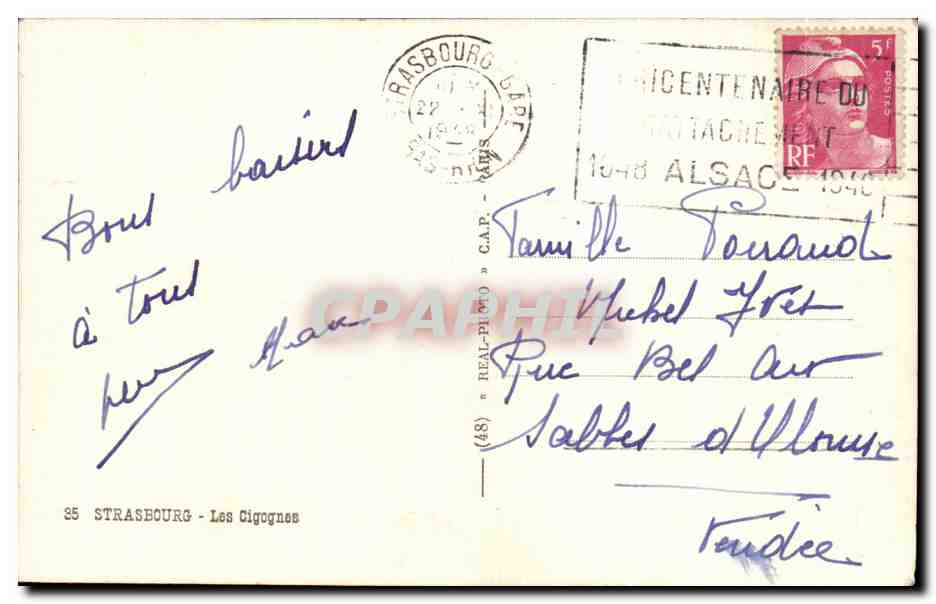 STRASBOURG GARE
22
1948
BAS-RHIN
TRICENTENAIRE DU
RATTACHEMENT
1648 ALSACE 1948
5F
POSTES
RF
Bons baisers
à tous
Jean
Famille
Michel Yves
Rue Bel Air
Sables d'Olonne
Vendée
(48) « REAL-PHOTO » C.A.P. - PARIS
CPAPHIL
35 STRASBOURG - Les Cigognes